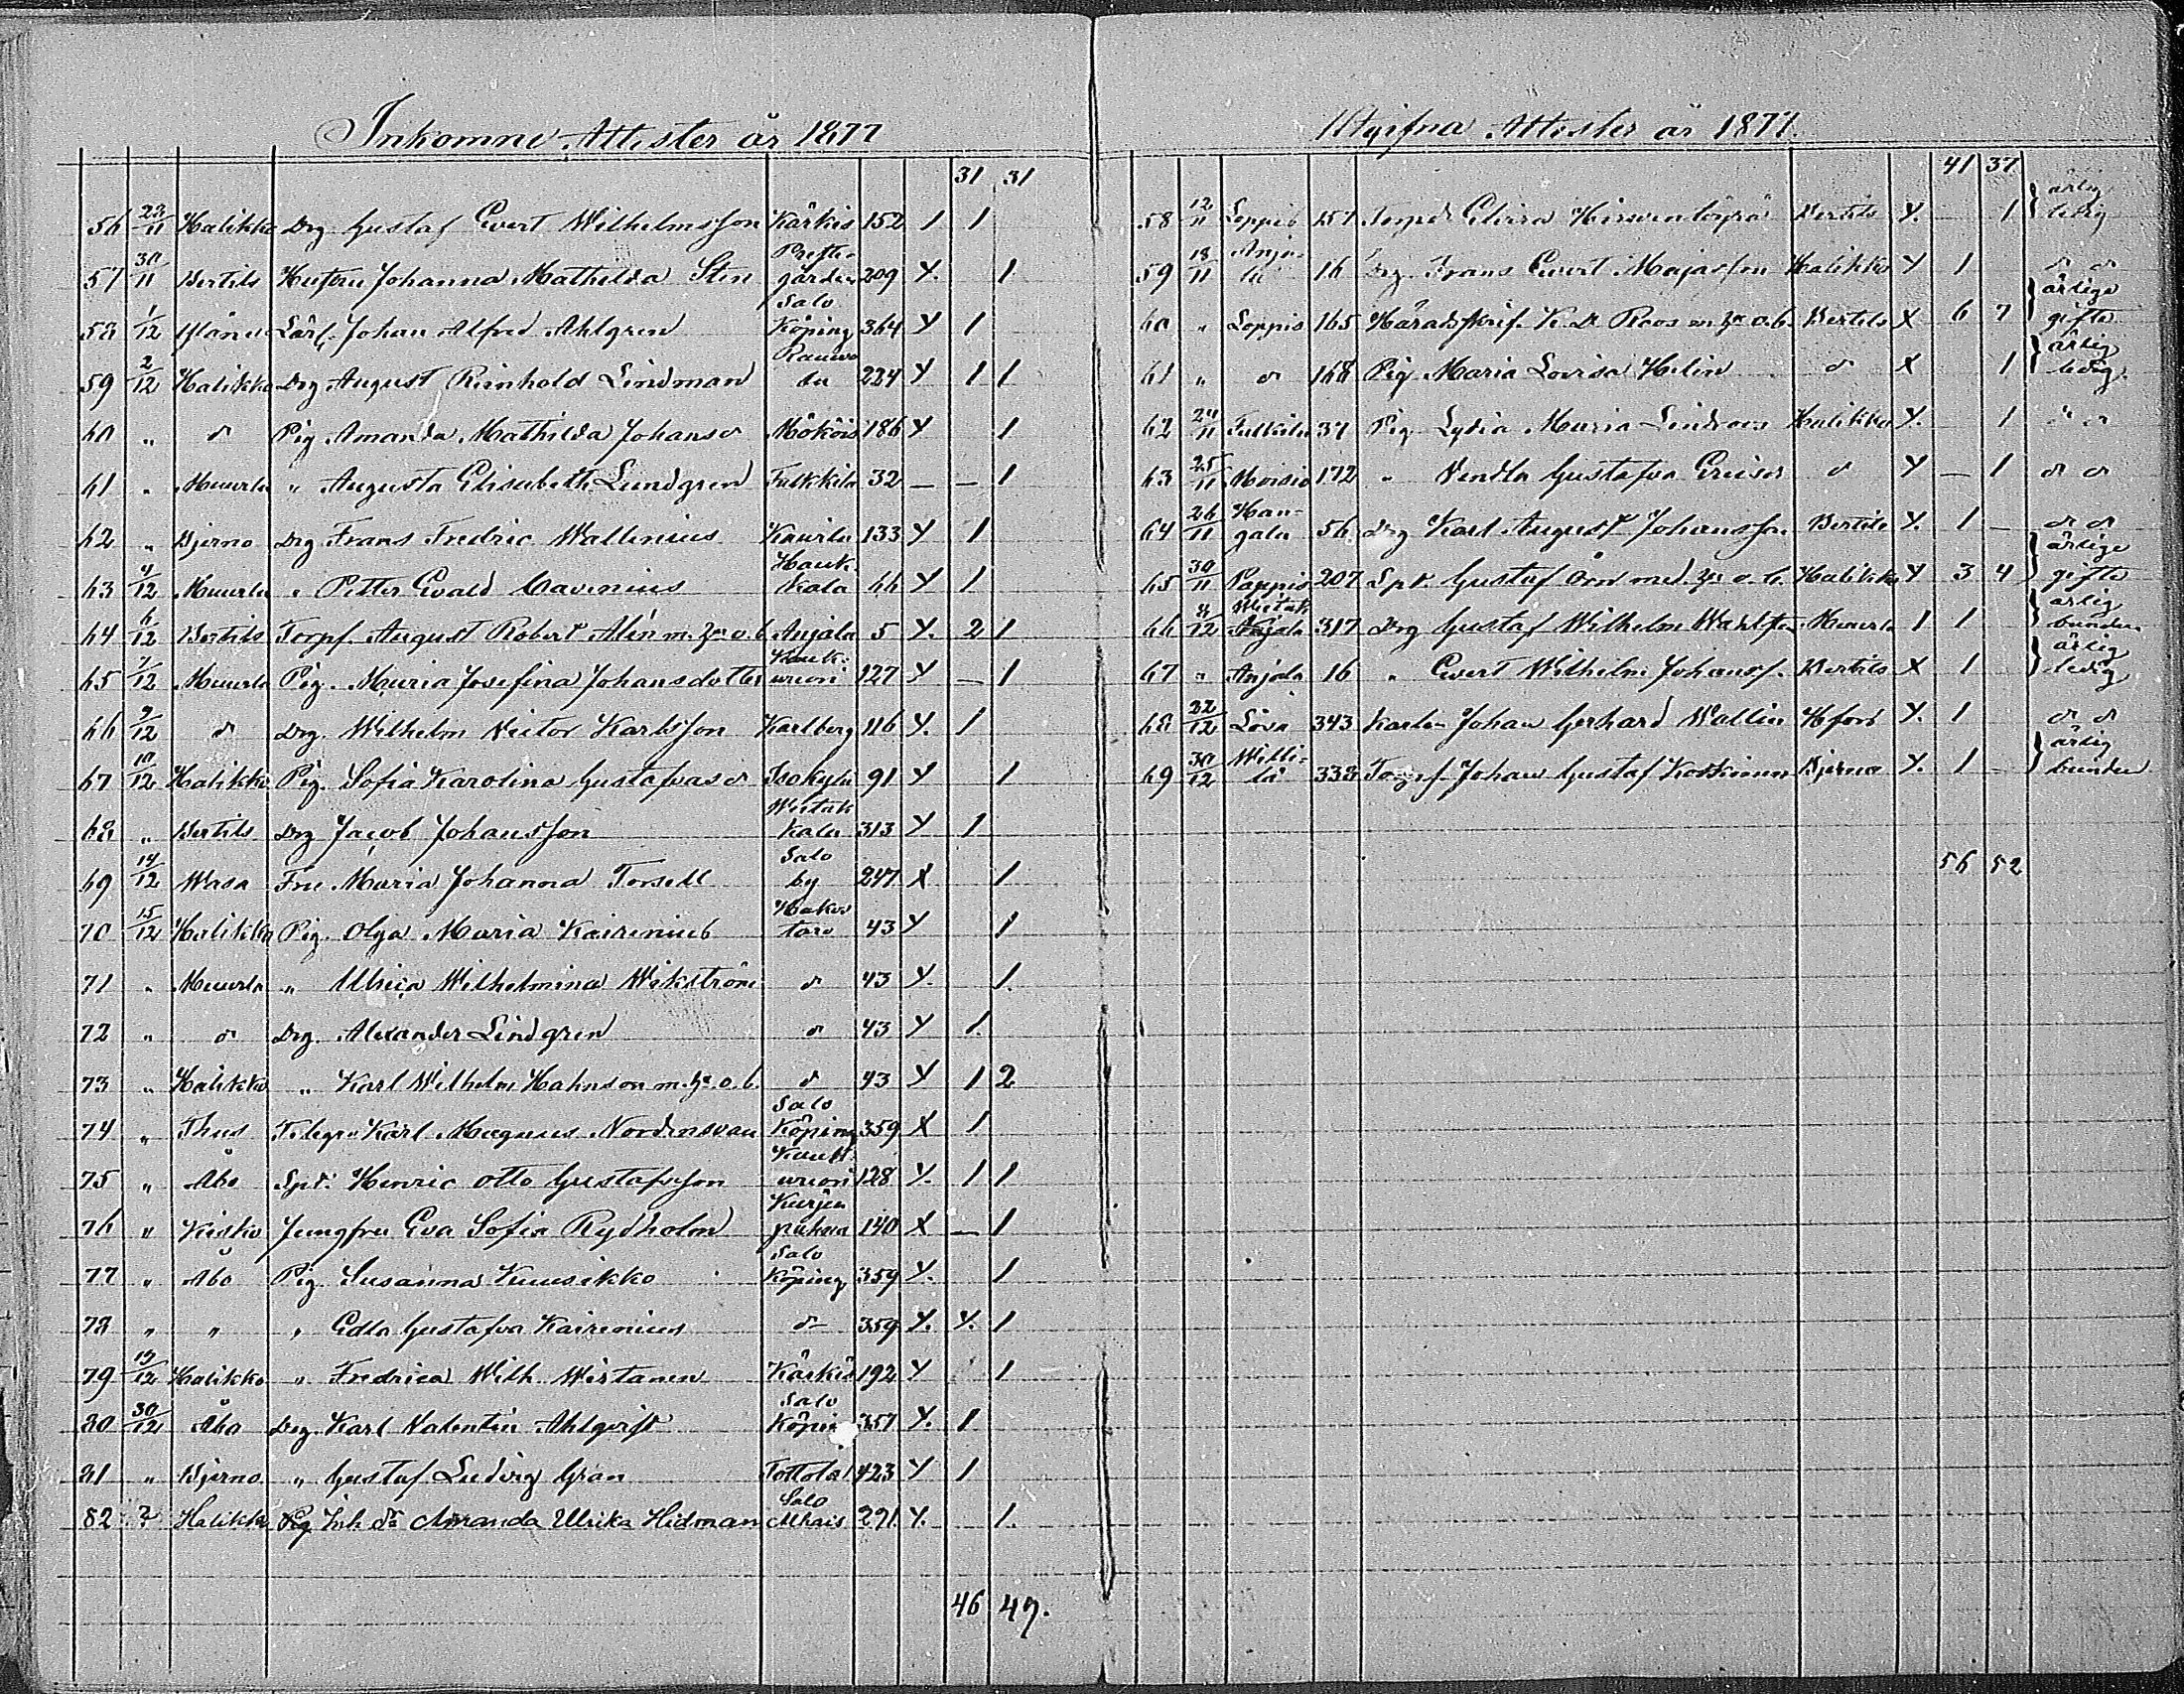 Inkomne Attester år 1877
31 31
56 23/11 Halikko Drg Gustaf Evert Wilhelmsson Kärkis 152 1 1
57 30/11 Bertils Hustru Johanna Mathilda Sten Prestegården 209 Y. 1
58 1/12 Lärl. Johan Alfred Ahlgren Salo Köping 364 Y 1
59 2/12 Halikko Drg August Reinhold Lindman 224 Y 1 1
60 " d Pig Amanda Mathilda Johansd Mököis 186 Y 1
61 " Muurla " Augusta Elisabeth Lundgren Falkkila 32 — — 1
62 " Bjerno Drg Frans Fredric Wallenius Kaurla 133 Y 1
63 4/12 Muurla " Petter Evald Cavenius Haukkala 66 Y 1
64 6/12 Bertils Torpf. August Robert Alén m. h. o. b. Anjala 5 Y. 2 1
65 7/12 Muurla Pig. Maria Josefina Johansdotter 127 Y — 1
66 9/12 d Drg. Wilhelm Victor Karlsson Karlberg 116 Y. 1
67 10/12 Halikko Pig. Sofia Karolina Gustafvasd Isokylä 91 Y 1
68 " Bertils Drg Jacob Johansson 313 Y 1
69 14/12 Wasa Fru Maria Johanna Forsell Salo by 247 X 1
70 15/12 Halikko Pig. Olga Maria Kairenius Hakostaro 43 Y 1
71 " Muurla " Ulrica Wilhelmina Wikström d 43 Y. 1.
72 " d Drg. Alexander Lindgren d 43 Y 1.
73 " Halikko " Karl Wilhelm Hahnson m. h. o. b. d 43 Y 1 2
74 " Thus Telegr. Karl Magnus Nordensvan Salo Köping 359 X 1
75 " Åbo Spt. Henric Otto Gustafsson 128 Y. 1 1
76 " Kisko Jungfru Eva Sofia Rydholm 140 X — 1
77 " Åbo Pig. Susanna Kuusikko Salo Köping 359 Y. 1
78 " " " Edla Gustafva Kairenius d 359 Y. Y. 1
79 19/12 Halikko " Fredrica Wilh. Wirtanen Kärkis 192 Y 1
80 30/12 Åbo Drg. Karl Valentin Ahlqvist Salo Köpin 357 Y. 1
81 " Bjerno " Gustaf Ludvig Gran Tottola 423 Y 1
82 ? Halikko Pig Amanda Ulrika Hidman Salo 291 Y. 1.
46 47.
Utgifna Attester år 1877.
41 37
58 12/11 Loppis 157 Elvira Bertils Y. 1 ärlig ledig
59 18/11 Anjala 16 Drg Frans Evert Majasson Halikko Y 1 d d
60 " Loppis 165 Häradsskrif. K. D. Roos m. h. o. b. Bertils X 6 7 ärlige gifte
61 " d 168 Pig Maria Lovisa Helin d X 1 ärlig ledig
62 Falkila 37 Pig Lydia Maria Lindroos Halikko Y. 1 d d
63 25/11 Moisio 172 " Vendla Gustafva d Y — 1 d d
64 26/11 Hangala 56 Drg Karl August Johansson Bertils Y. 1 — d d
65 30/11 Pappis 207 Spt. Gustaf Örn med h. o. b. Halikko Y 3 4 ärlige gifte
66 317 Drg Gustaf Wilhelm Muurla 1 1 ärlig bunden
67 " Anjala 16 " Evert Wilhelm Johanss. Bertils X 1 ärlig ledig
68 22/12 343 Karlen Johan Gerhard Wallin Hfors Y. 1 d d
69 30/12 Willilä 338 Torpf. Johan Gustaf Koskinen Bjerno Y. 1 — ärlig bunden
56 52